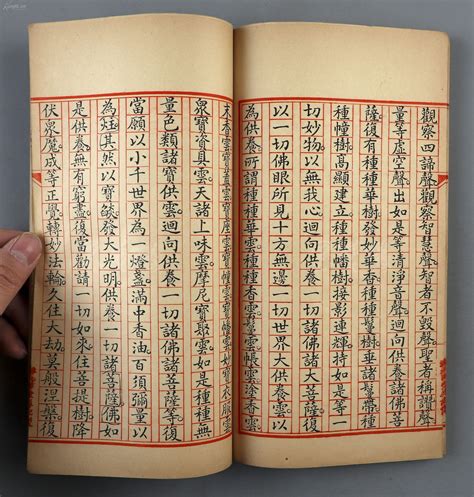 觀察四諦聲觀察智慧聲智者不毀聲聖者稱讚聲
量等虛空聲出如是等清淨音聲迴向供養諸佛菩
薩復有種種華樹發妙華香種種鬘樹垂諸鬘帶種
種幢樹高顯建立種種幡樹接影連輝持如是等一
切妙物以無我心迴向供養一切諸佛及諸菩薩
以一切佛眼所見十方無邊一切世界大供養雲
為供養所謂種種華雲香雲鬘雲帳雲塗香雲
末香雲寶衣服雲
眾寶資具雲天諸上味雲摩尼寶聚雲如是種種無
量色類諸寶供雲迴向供養一切諸佛諸菩薩等復
當願以小千世界為一燈盞滿中香油百須彌量以
為炷其然以寶發大光明供養一切諸菩薩佛如
是供養無有窮盡復當勸請一切如來住菩提樹降
伏眾魔成等正覺轉妙法輪久住大劫莫般涅槃復